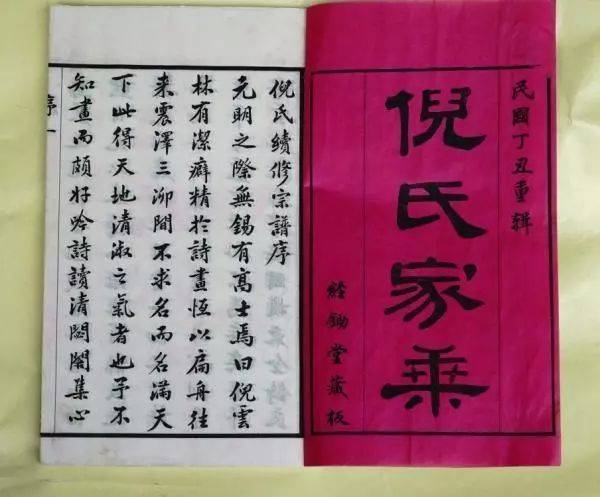 民國丁丑重輯
倪氏家乗
經鋤堂藏板
倪氏續修宗譜序
元明之際無錫有高士焉曰倪雲
林有潔癖精於詩畫恆以扁舟往
来震澤三泖間不求名而名滿天
下此得天地清淑之氣者也予不
知畫而頗好吟詩讀清閟閣集心
序一